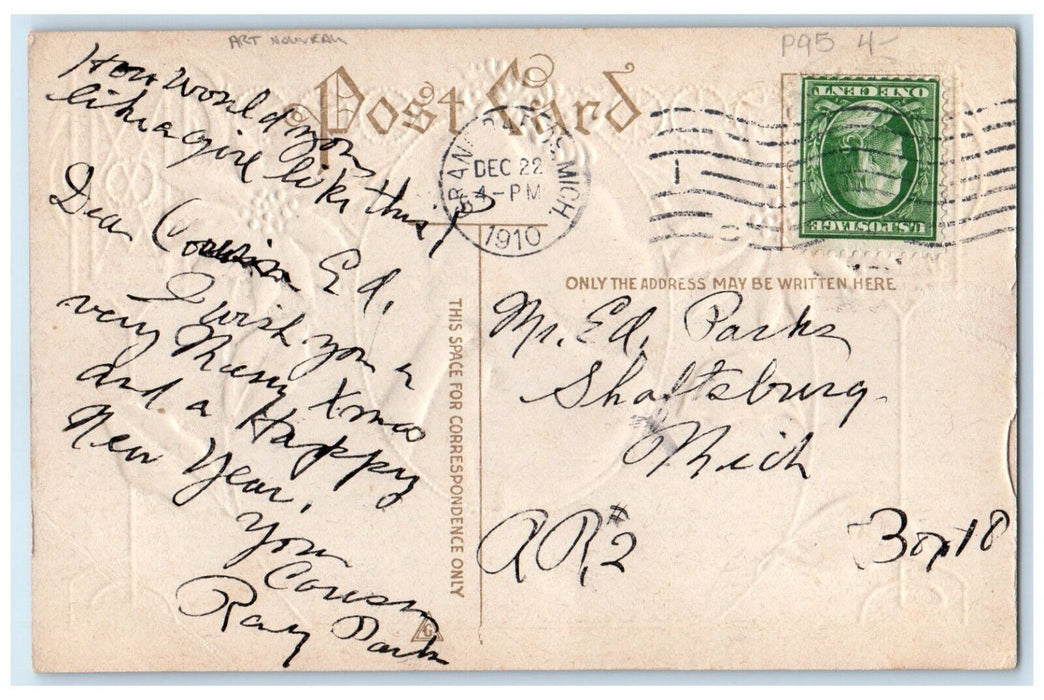 ART NOUVEAU
P95 4-
Post Card
How would you
like a girl like this?
Dear Cousin Ed,
I wish you a
very Merry Xmas
and a Happy
New Year,
Your
Cousin
Ray Parks
THIS SPACE FOR CORRESPONDENCE ONLY
G
GRAND RAPIDS, MICH.
DEC 22
4-PM
1910
1
U.S. POSTAGE
ONE CENT
ONLY THE ADDRESS MAY BE WRITTEN HERE
Mr. Ed. Parks
Shaftsburg.
Mich
R R, #2 Box 18